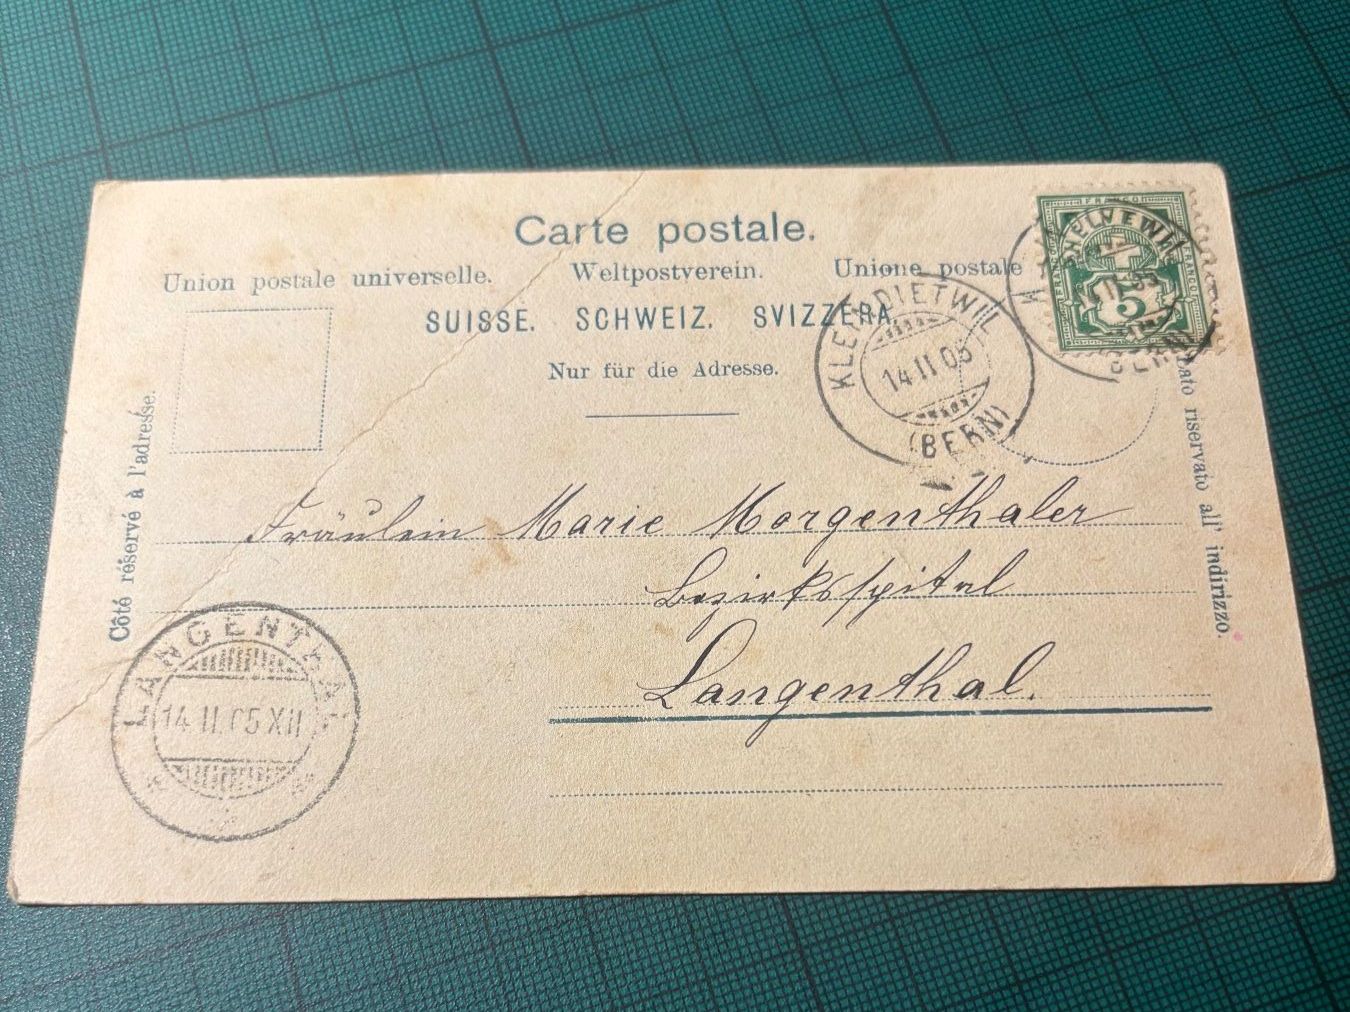 Carte postale.
Union postale universelle. Weltpostverein. Unione postale
SUISSE. SCHWEIZ. SVIZZERA.
Nur für die Adresse.
Côté réservé à l'adresse.
lato riservato all' indirizzo.
FRANCO
HELVETIA
5
KLEINDIETWIL
14.II.05
(BERN)
Fräulein Marie Morgenthaler
Bezirksspital
Langenthal.
LANGENTHAL
14.II.05 XII